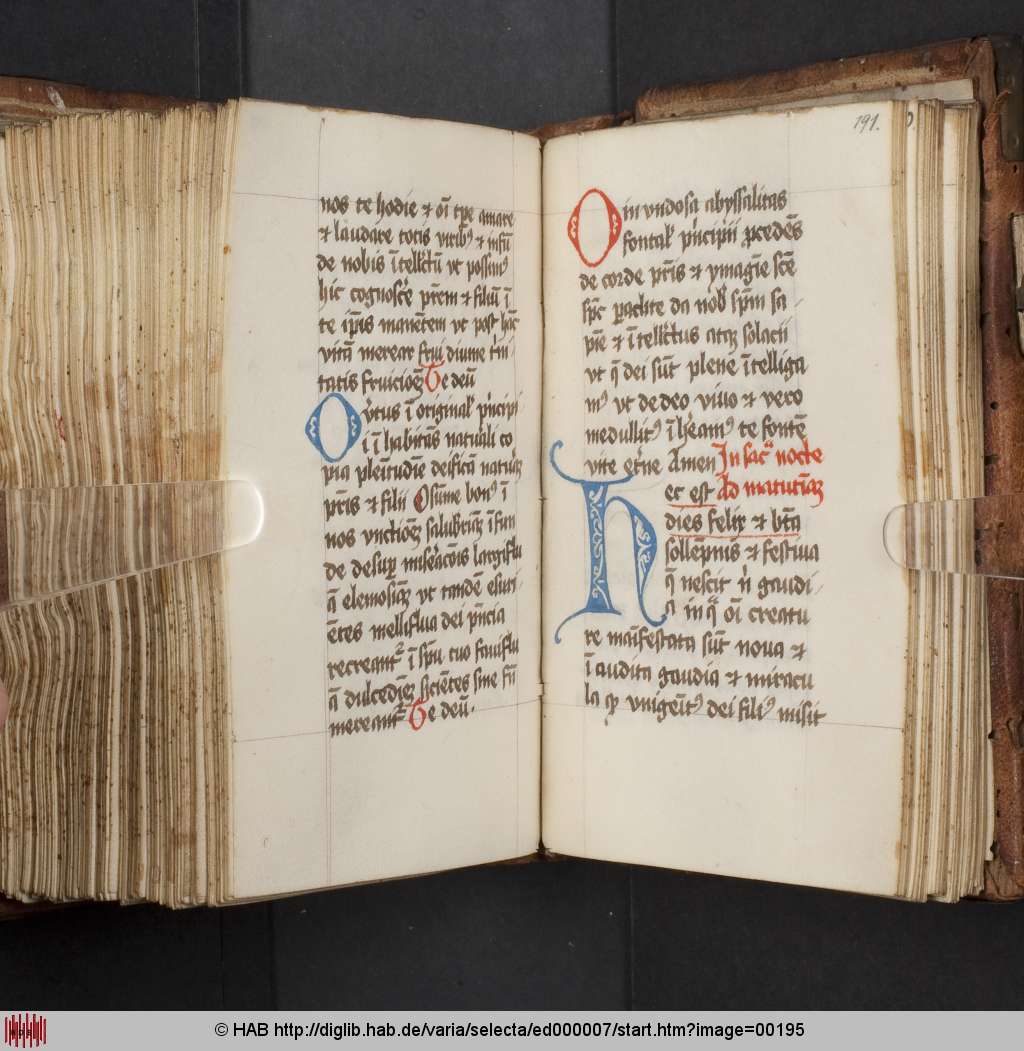 nos te hodie et oī tpe amare
et laudare totis viribꝰ et infū
de nobis ītellctū vt possimꝰ
hic cognosce prem et filiū ī
te ipis manētem vt post hāc
vitā merear frui diuine tni
tatis fruicioēz Te deū
Ortus ī originali pncipi
o īhabitās naturali co
pia pleītudīe deificā naturā
pris et filii Osūme bonꝰ ī
nos vnctionēz salubrēz īfun
de desup miseracōis largiflu
ā elemosinaz vt tandē esuri
ētes melliflua dei pncia
recreant ī spū tuo fauiflu
ā dulcedinēz sicientes sine fī
mereant Te deū.
191.
O in vndosa abyssalitas
fontal pncipii pcedēs
de corde pris et ymagīe scē
spc paclite da nob spm sa
pie et ītellctus atqz solacii
vt q dei sūt plene ītelliga
mꝰ vt de deo viuo et vero
medullitꝰ īheamꝰ te fontē
vite etne Amen In sac nocte
Hec est Ad matutinaz
dies felix et btā
sollempnis et festiua
q nescit n gaudi
a in q oī creatu
re maīfestata sūt noua et
īaudita gaudia et miracu
la qp vnigeitꝰ dei filiꝰ misit
© HAB http://diglib.hab.de/varia/selecta/ed000007/start.htm?image=00195